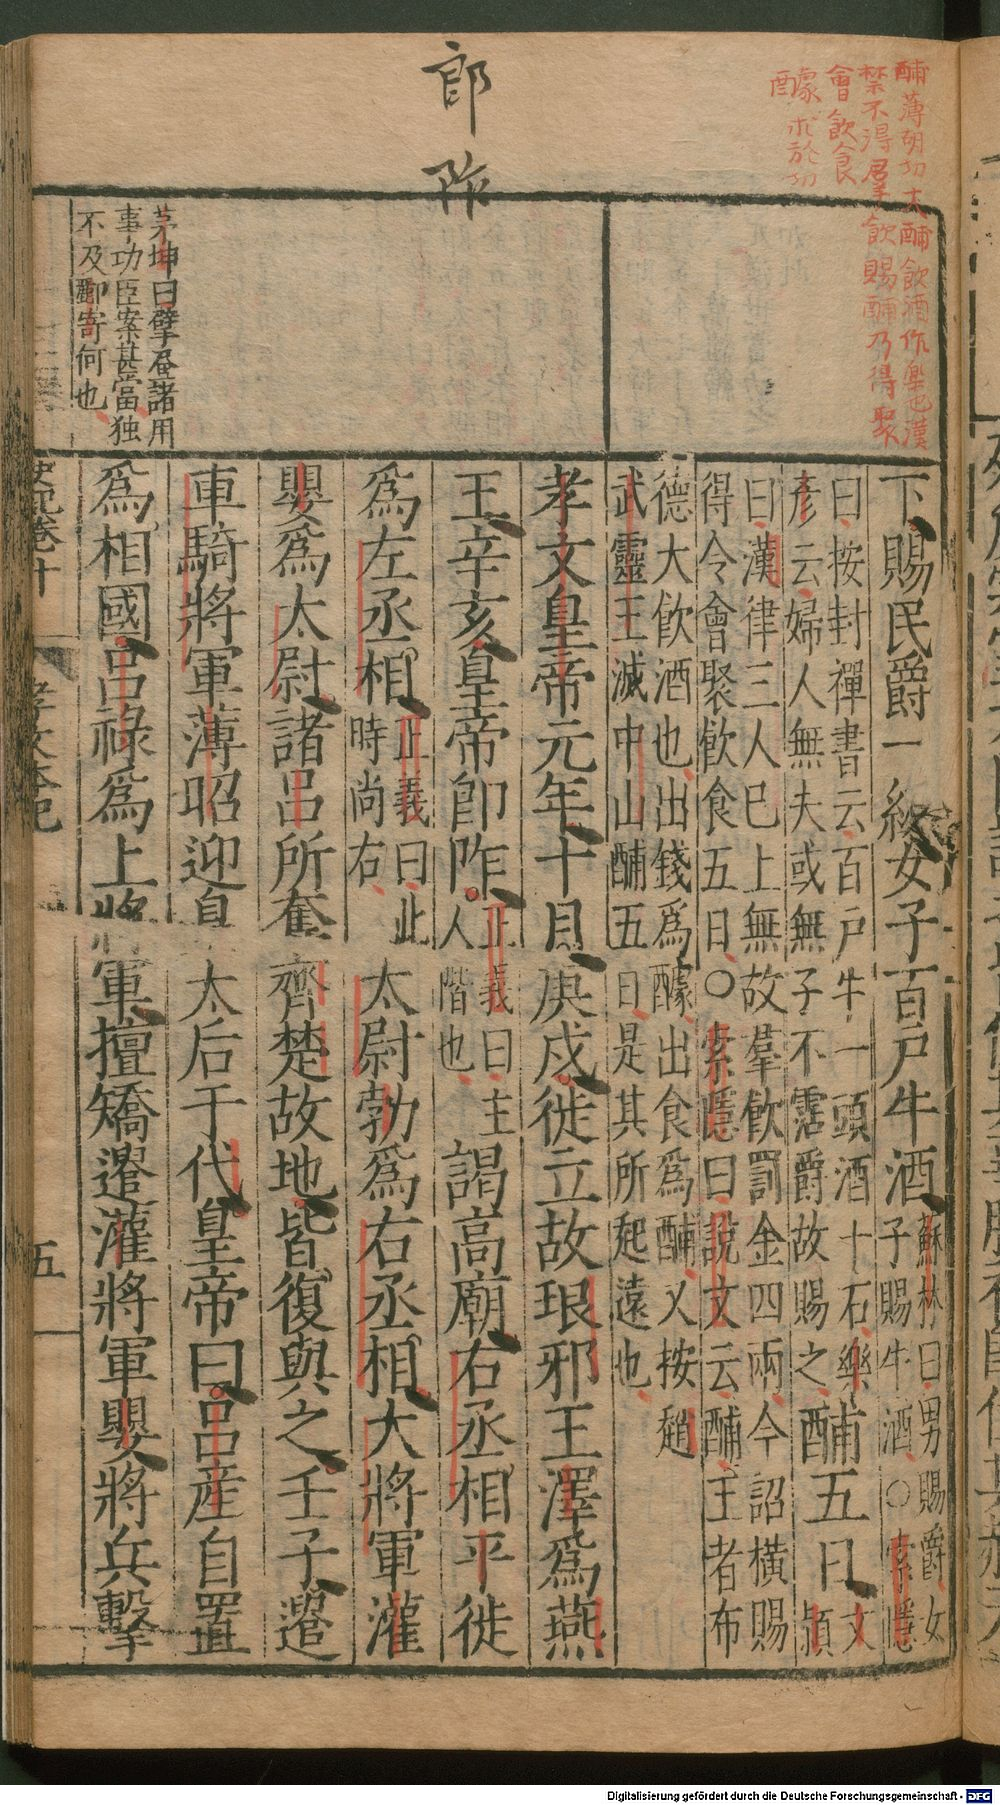 郎 阼
酺薄胡切大酺飲酒作樂也漢
禁不得羣飲賜酺乃得聚
會飲食
醵 於切
茅坤曰孽屋諸用
事功臣案甚當独
不及酈寄何也
下賜民爵一級女子百戶牛酒蘇林曰男賜爵女
子賜牛酒○索隱
曰按封禪書云百戶牛一頭酒十石樂
彥云婦人無夫或無子不霑爵故賜之酺五日文
頴
曰漢律三人已上無故羣飲罰金四兩今詔橫賜
得令會聚飲食五日○索隱曰說文云酺王者布
德大飲酒也出錢爲醵出食爲酺又按趙
武靈王滅中山酺五日是其所起遠也
孝文皇帝元年十月庚戌徙立故琅邪王澤爲燕
王辛亥皇帝卽阼正義曰主
人階也謁高廟右丞相平徙
爲左丞相正義曰此
時尚右太尉勃爲右丞相大將軍灌
嬰爲太尉諸呂所奪齊楚故地皆復與之壬子遣
車騎將軍薄昭迎皇太后于代皇帝曰呂産自置
爲相國呂祿爲上將軍擅矯遣灌將軍嬰將兵擊
史記卷十 孝文本紀 五
Digitalisierung gefördert durch die Deutsche Forschungsgemeinschaft - DFG